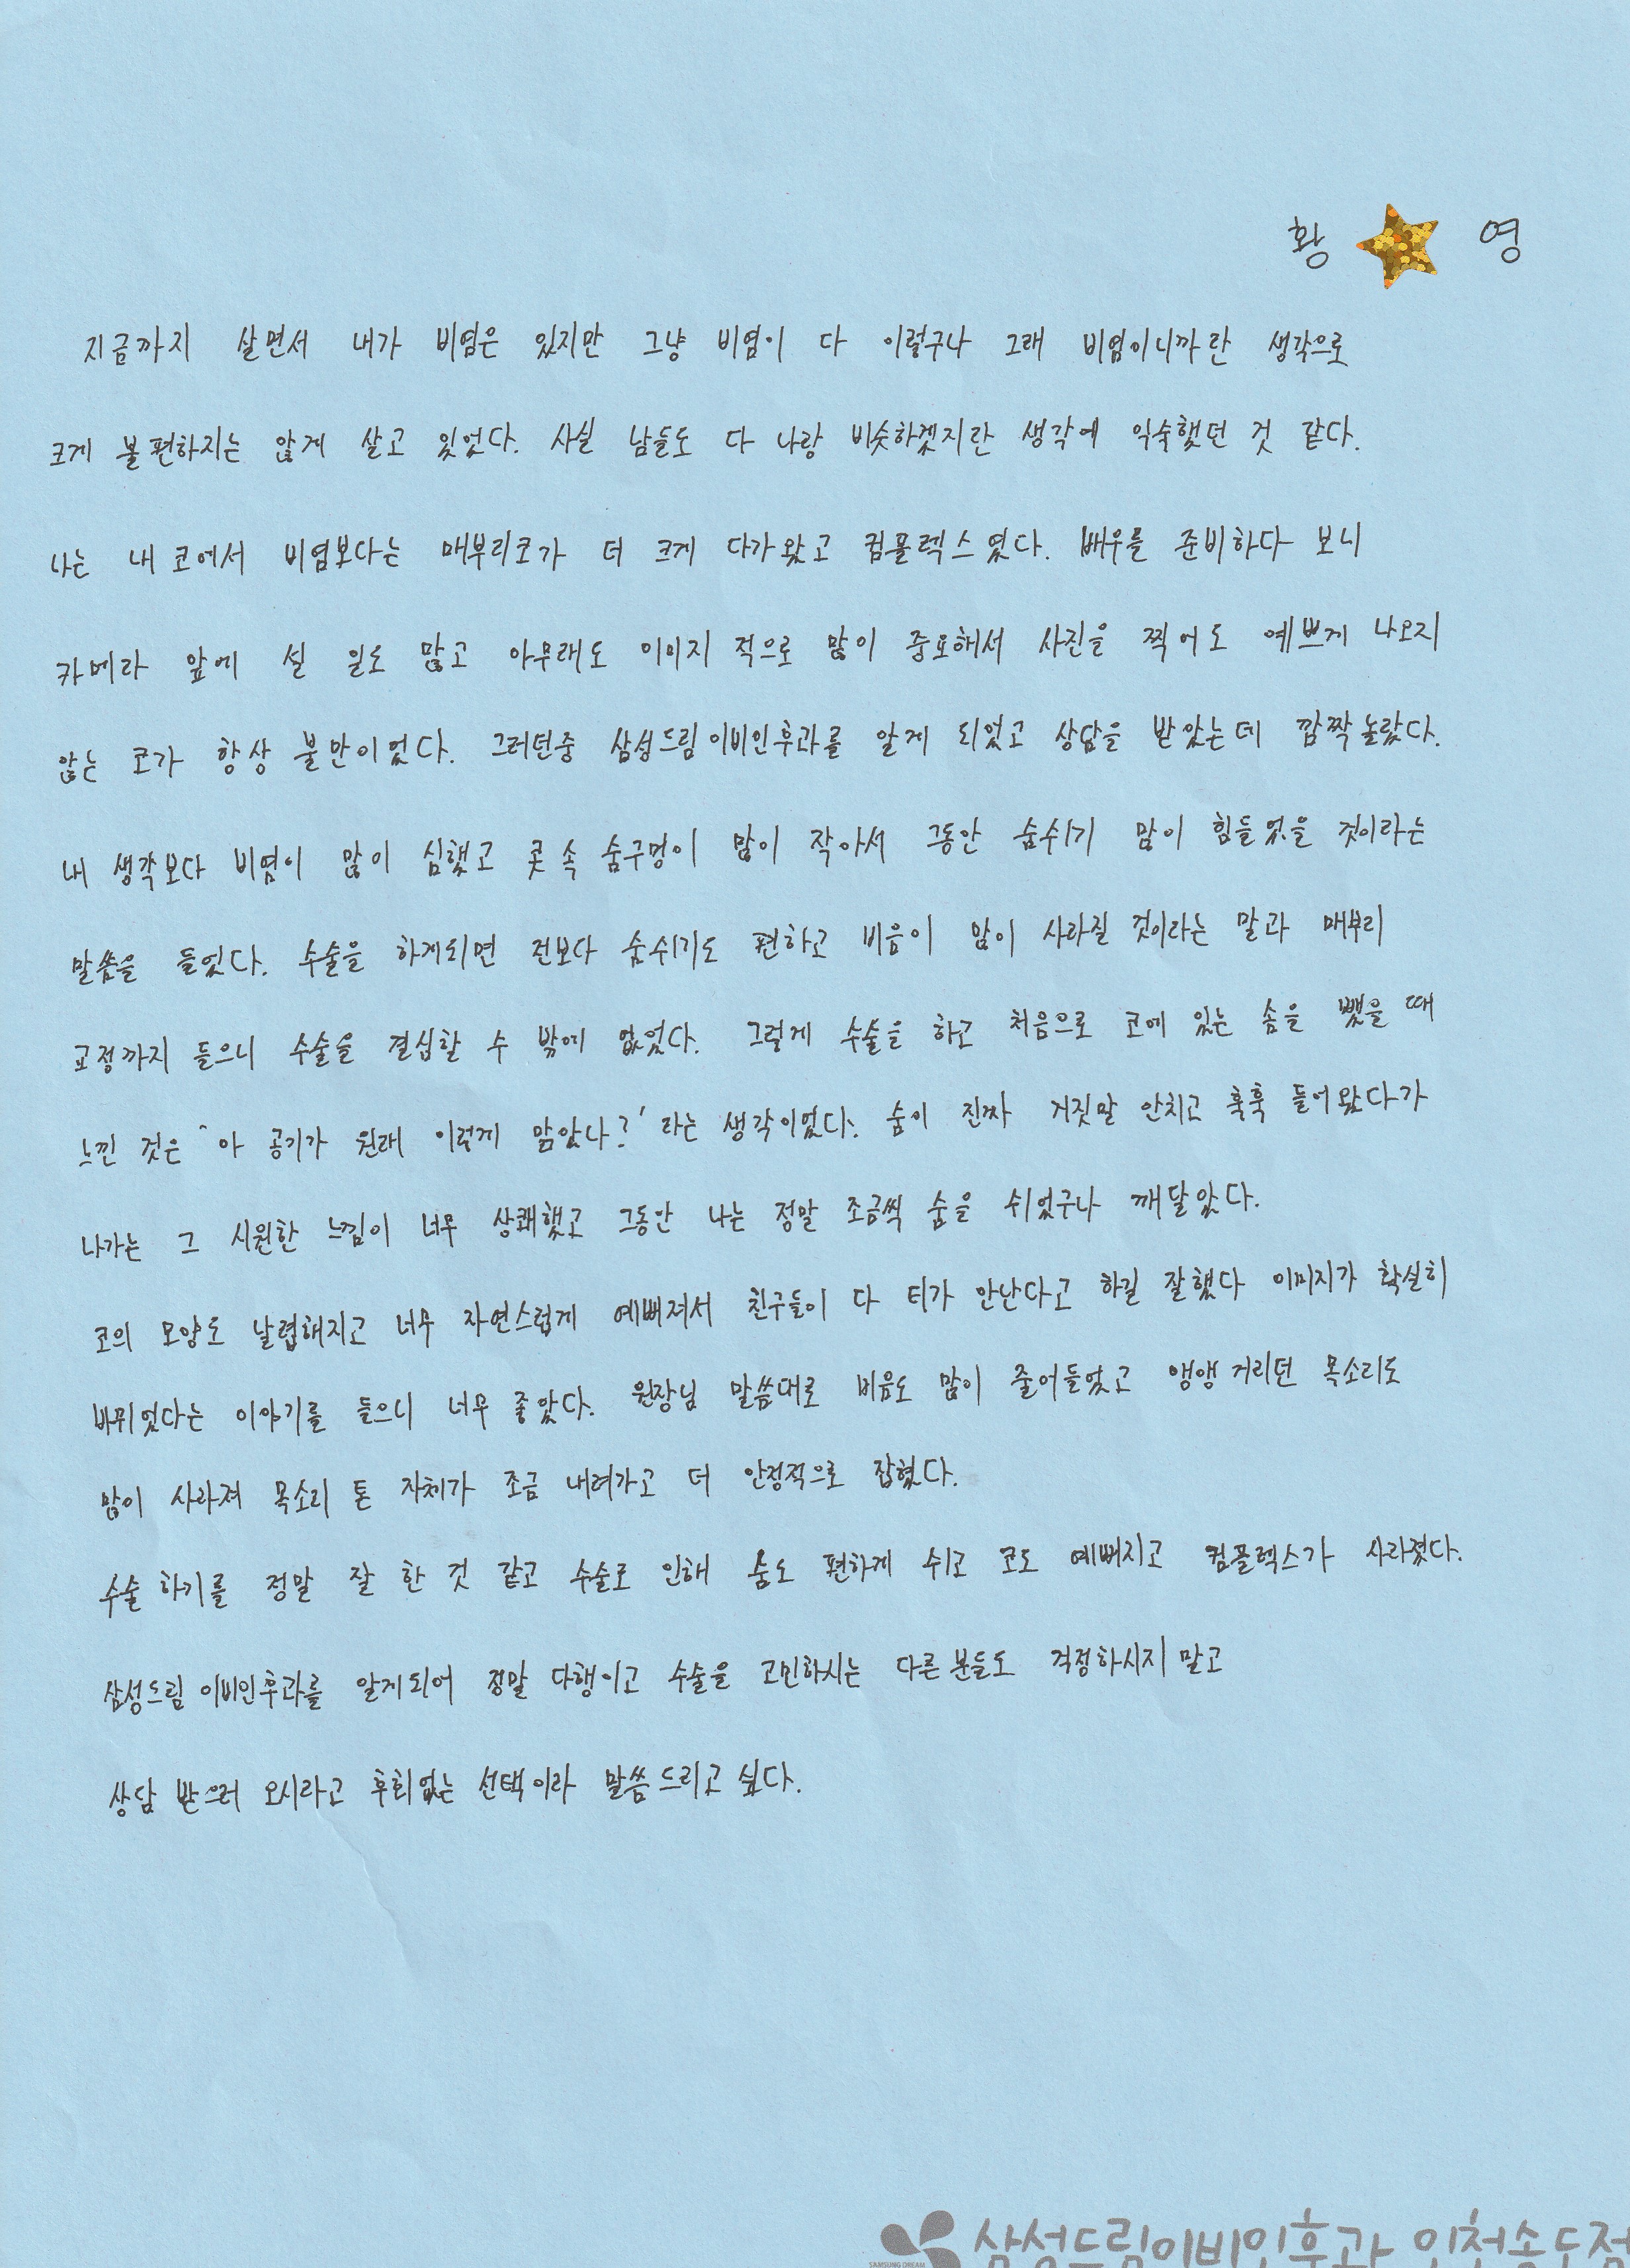 황 영
지금까지 살면서 내가 비염은 있지만 그냥 비염이 다 이렇구나 그래 비염이니까란 생각으로
크게 불편하지는 않게 살고 있었다. 사실 남들도 다 나랑 비슷하겠지란 생각에 익숙했던 것 같다.
나는 내 코에서 비염보다는 매부리코가 더 크게 다가왔고 컴플렉스였다. 배우를 준비하다 보니
카메라 앞에 설 일도 많고 아무래도 이미지 적으로 많이 중요해서 사진을 찍어도 예쁘게 나오지
않는 코가 항상 불만이었다. 그러던중 삼성드림이비인후과를 알게 되었고 상담을 받았는데 깜짝놀랐다.
내 생각보다 비염이 많이 심했고 콧 속 숨구멍이 많이 작아서 그동안 숨쉬기 많이 힘들었을 것이라는
말씀을 들었다. 수술을 하게되면 전보다 숨쉬기도 편하고 비음이 많이 사라질 것이라는 말과 매부리
교정까지 들으니 수술을 결심할 수 밖에 없었다. 그렇게 수술을 하고 처음으로 코에 있는 솜을 뺐을 때
느낀 것은 '아 공기가 원래 이렇게 맑았나?' 라는 생각이었다. 숨이 진짜 거짓말 안치고 훅훅 들어왔다가
나가는 그 시원한 느낌이 너무 상쾌했고 그동안 나는 정말 조금씩 숨을 쉬었구나 깨달았다.
코의 모양도 날렵해지고 너무 자연스럽게 예뻐져서 친구들이 다 티가 안난다고 하길 잘했다 이미지가 확실히
바뀌었다는 이야기를 들으니 너무 좋았다. 원장님 말씀대로 비음도 많이 줄어들었고 앵앵거리던 목소리도
많이 사라져 목소리 톤 자체가 조금 내려가고 더 안정적으로 잡혔다.
수술 하기를 정말 잘 한 것 같고 수술로 인해 숨도 편하게 쉬고 코도 예뻐지고 컴플렉스가 사라졌다.
삼성드림이비인후과를 알게되어 정말 다행이고 수술을 고민하시는 다른분들도 걱정하시지 말고
상담 받으러 오시라고 후회없는 선택이라 말씀드리고 싶다.
SAMSUNG DREAM
삼성드림이비인후과 인천송도점